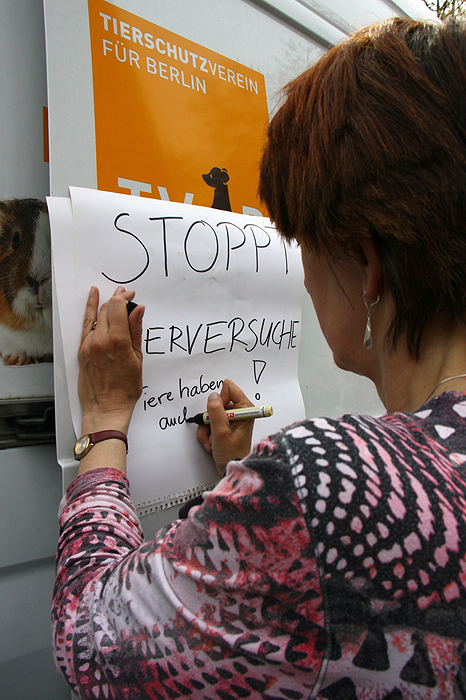 TIERSCHUTZVEREIN
FÜR BERLIN
TV
STOPPT
ERVERSUCHE
!
Tiere haben
auch